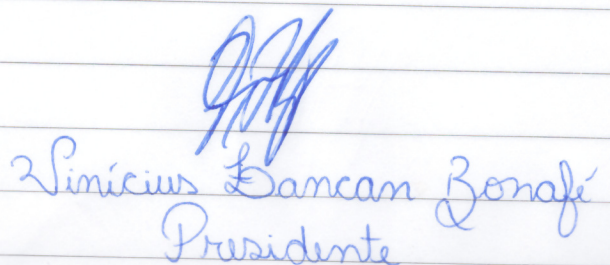 Vinícius Zancan Bonafé
Presidente